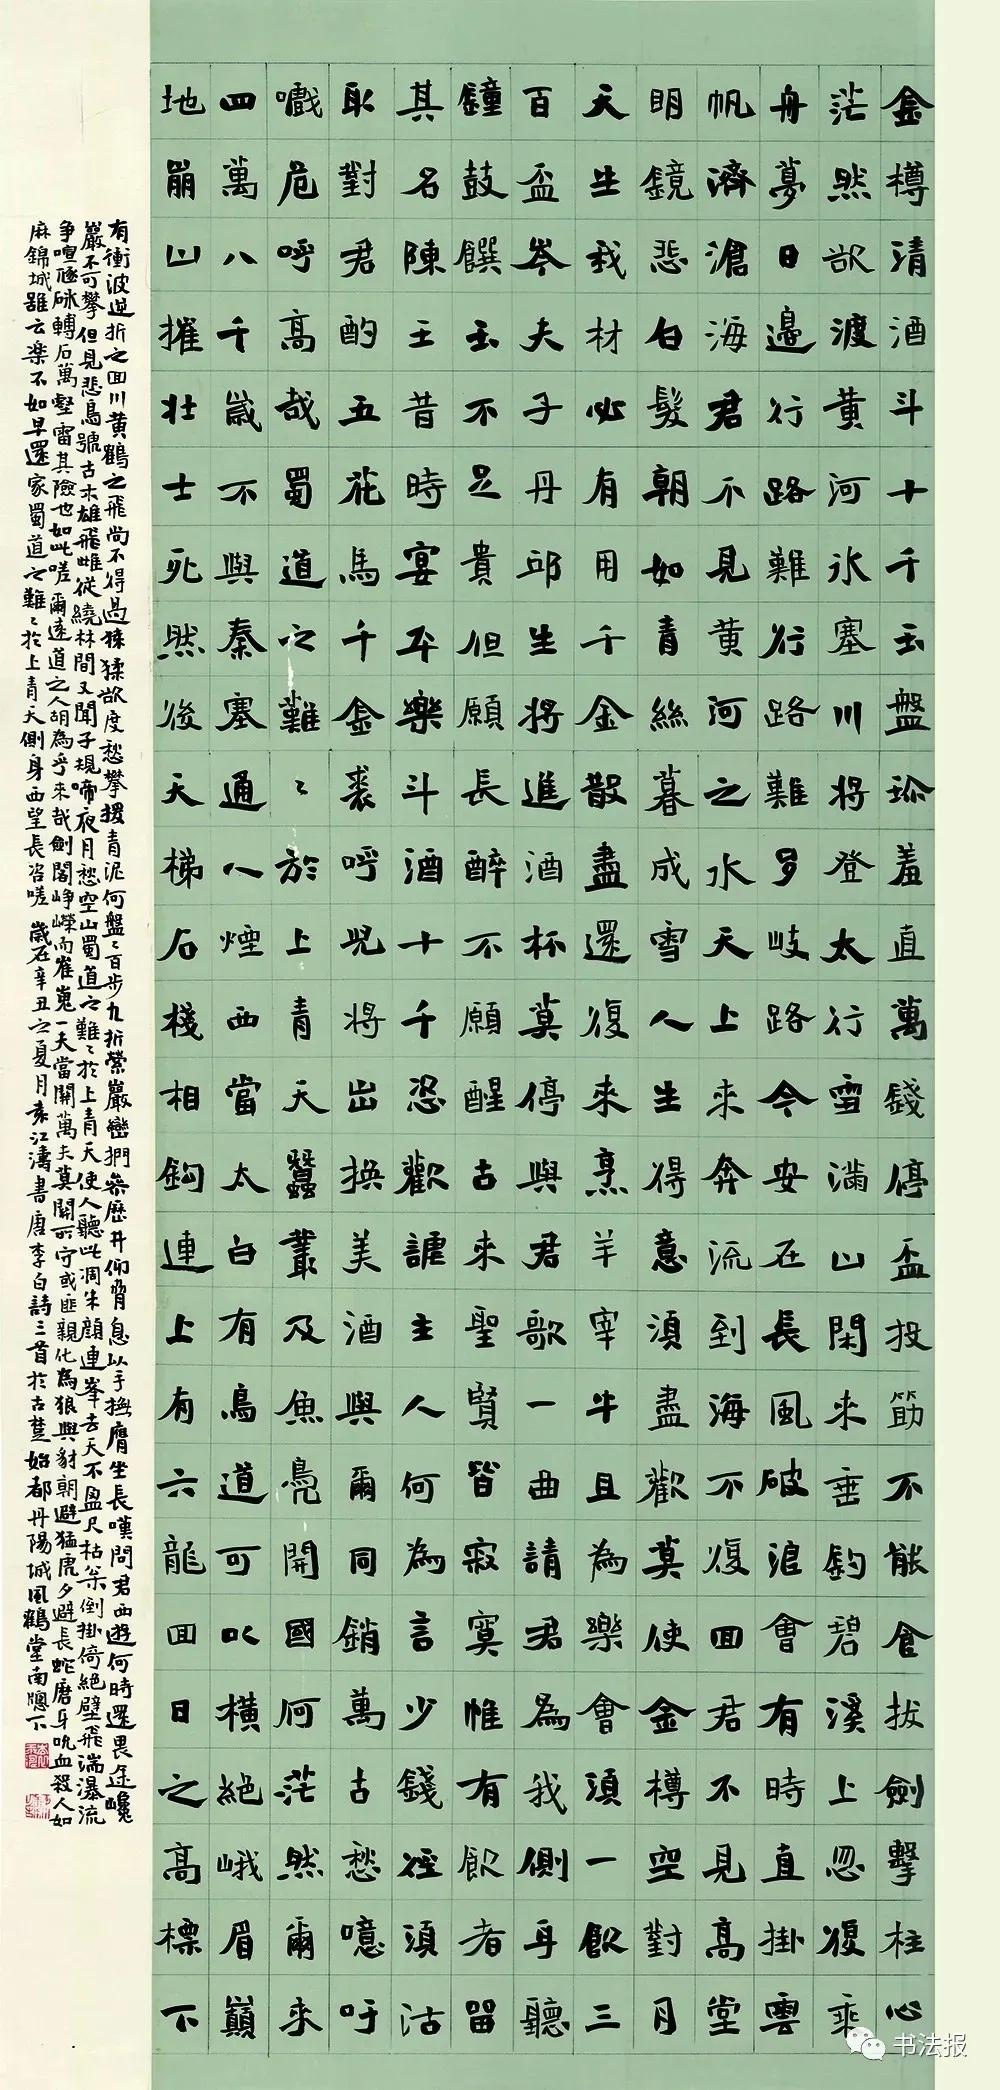 金樽清酒斗十千玉盤珎羞直萬錢停盃投筯不能食拔劍擊柱心
茫然欲渡黃河氷塞川將登太行雪滿山閑來垂釣碧溪上忽復乘
舟夢日邊行路難行路難多岐路今安在長風破浪會有時直掛雲
帆濟滄海君不見黃河之水天上來奔流到海不復回君不見高堂
明鏡悲白髮朝如青絲暮成雪人生得意須盡歡莫使金樽空對月
天生我材必有用千金散盡還復來烹羊宰牛且為樂會須一飲三
百盃岑夫子丹邱生將進酒杯莫停與君歌一曲請君為我側耳聽
鐘鼓饌玉不足貴但願長醉不願醒古來聖賢皆寂寞惟有飲者留
其名陳王昔時宴平樂斗酒十千恣歡謔主人何為言少錢徑須沽
取對君酌五花馬千金裘呼兒將出換美酒與爾同銷萬古愁噫吁
嚱危呼高哉蜀道之難〻於上青天蠶叢及魚鳧開國何茫然爾來
四萬八千歲不與秦塞通人煙西當太白有鳥道可以橫絕峨眉巔
地崩山摧壯士死然後天梯石棧相鈎連上有六龍回日之高標下
有衝波逆折之回川黃鶴之飛尚不得過猨猱欲度愁攀援青泥何盤〻百步九折縈巖巒捫參歷井仰脅息以手撫膺坐長嘆問君西遊何時還畏途巉
巖不可攀但見悲鳥號古木雄飛雌從繞林間又聞子規啼夜月愁空山蜀道之難〻於上青天使人聽此凋朱顏連峯去天不盈尺枯松倒掛倚絕壁飛湍瀑流
爭喧豗砯轉石萬壑雷其險也如此嗟爾遠道之人胡為乎來哉劍閣崢嶸而崔嵬一夫當關萬夫莫開所守或匪親化為狼與豺朝避猛虎夕避長蛇磨牙吮血殺人如
麻錦城雖云樂不如早還家蜀道之難〻於上青天側身西望長咨嗟 歲在辛丑之夏月 江濤書唐李白詩三首於古楚始都丹陽城風鶴堂南牕下
书法报